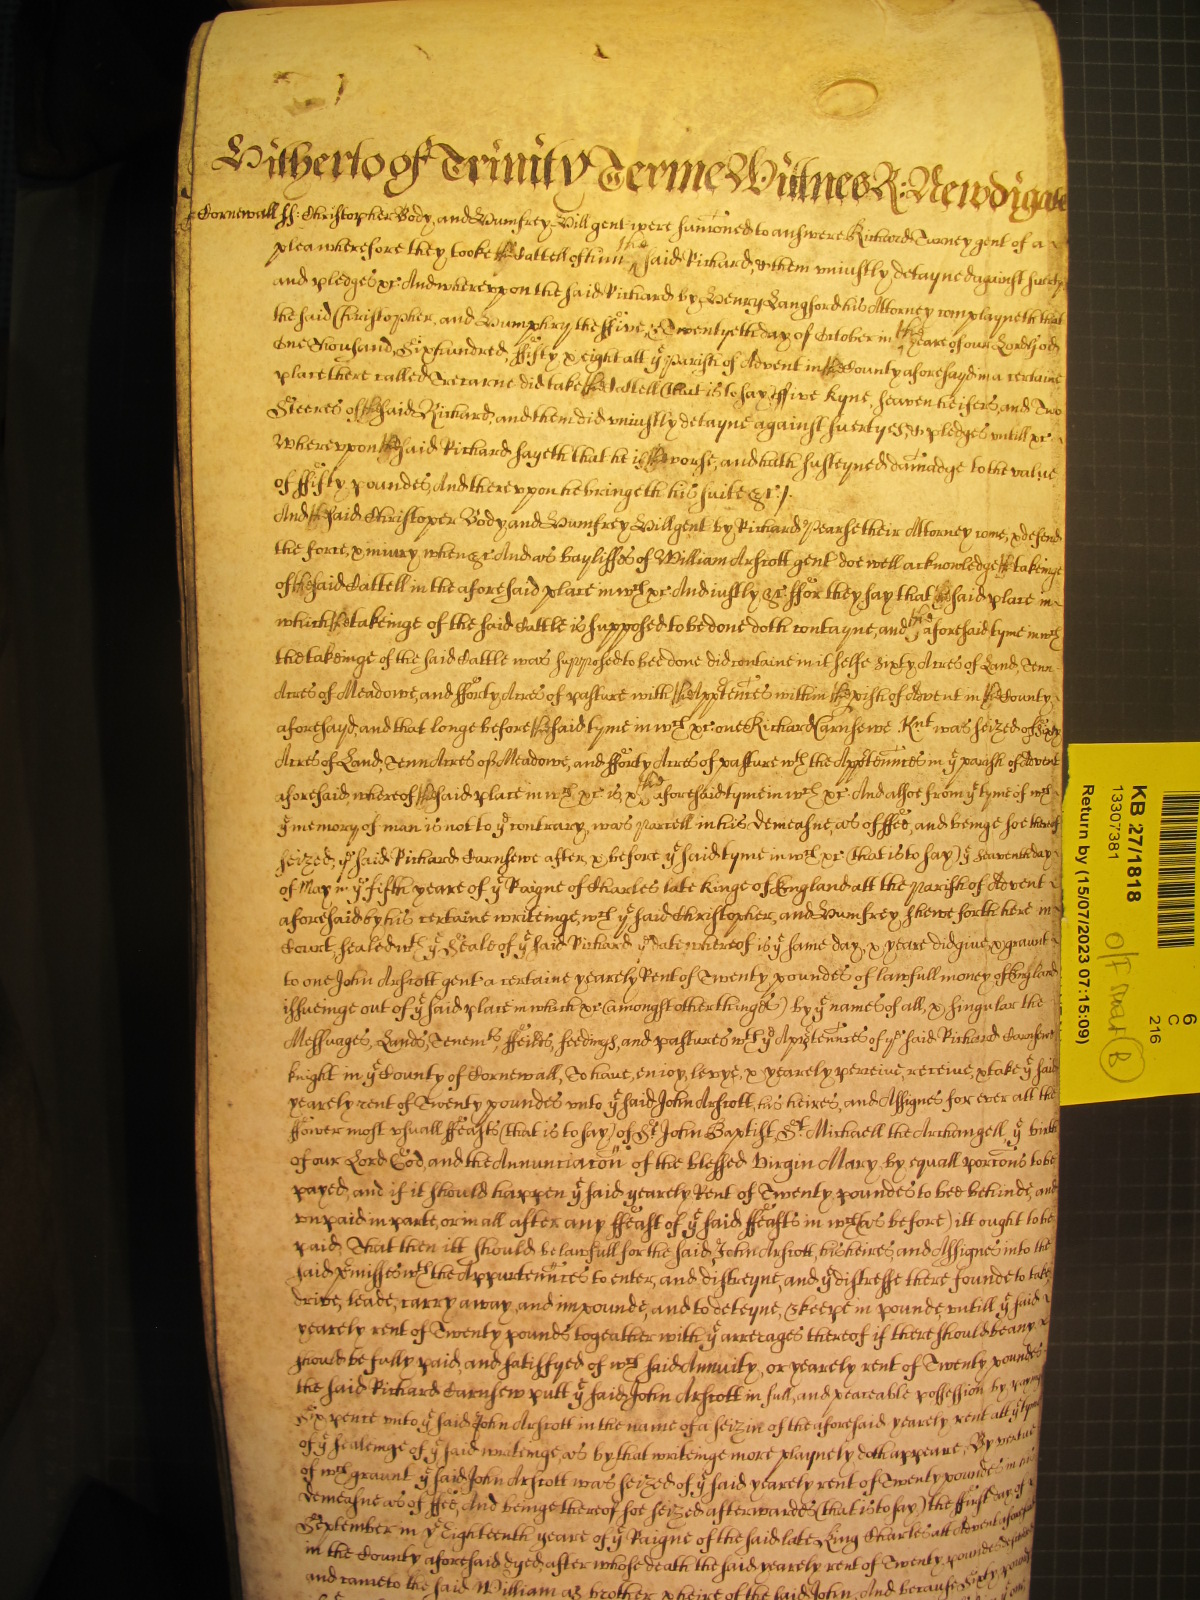 Hitherto of Trinity Terme Witnes R: Newdigate
Cornewall ss: Christopher Body, and Humfrey Hill gent were sum̄oned to answere Richard Turney gent of a
plea wherefore they tooke the Cattell of him the said Richard, & them uniustly detayned against suerty
and pledges &c And whereupon the said Richard by Henry Langford his Attorney complayneth that
the said Christopher, and Humphry the ffive & Twentyeth day of October in the yeare of our Lord God
One Thousand, Six hundred, ffifty & eight att ye Parish of Advent in the County aforesayd in a certaine
place there called Trecarne did take the Cattell (that is to say) ffive Kyne, seaven heifers, and Two
Steeres of the said Richard, and them did uniustly detayne against suertyes, & pledges untill &c
Whereupon the said Richard sayeth that he is the worse, and hath susteyned damadge to the value
of ffifty poundes, And thereupon he bringeth his suite &c /.
And the said Christoper Body, and Humfrey Hill gent by Richard Pearse their Attorney come, & defend
the force, & iniury when &c And as bayliffes of William Arscott gent doe well acknowledge the takeinge
of the said Cattell in the aforesaid place in wch &c And iustly &c ffor they say that the said place in
which the takeinge of the said Cattle is supposed to be done doth contayne, and the aforesaid tyme in wch
the takeinge of the said Cattle was supposed to bee done did containe in it selfe Sixty Acres of Land, Tenn
Acres of Meadowe, and fforty Acres of pasture with the Apptences within the pish of Advent in the County
aforesayd, and that longe before the said tyme in wch &c one Richard Carnsewe Knt was seized of Sixty
Acres of Land, Tenn Acres of Meadowe, and fforty Acres of pasture wth the Apptennces in ye parish of Advent
aforesaid whereof the said place in wch &c is, & the aforesaid tyme in wch &c And alsoe from ye tyme of wch
ye memory of man is not to ye contrary, was parcell in his demeasne, as of ffee, and beinge soe thereof
seized, ye said Richard Carnsewe after, & before ye said tyme in wch &c (that is to say) ye Seaventh day
of May in ye fifth yeare of ye Raigne of Charles late Kinge of England att the parish of Advent
aforesaid by his certaine writeinge, wch ye said Christopher, and Humfrey shewe forth here in
Court, sealed wth ye Seale of ye said Richard ye date whereof is ye same day, & yeare did give, & graunt
to one John Arscott gent a certaine yearely Rent of Twenty poundes of lawfull money of England
issueinge out of ye said place in which &c (amongst other thinges) by ye names of all, & singular the
Messuages, Lands, Tenemts, ffeilds, feedings, and pastures wth ye Apptennces of ye said Richard Carnsewe
knight in ye County of Cornewall, To have, enioy, levye, & yearely perceive, receive, & take ye said
yearely rent of Twenty poundes unto ye said John Arscott, his heires, and Assignes for ever att the
ffower most usuall ffeasts (that is to say) of St John Baptist, St Michaell the Archangell, ye birth
of our Lord God, and the Annunciacon of the blessed Virgin Mary, by equall porcons to be
payed, and if it should happen ye said yearely Rent of Twenty poundes to bee behinde, and
unpaid in parte, or in all after any ffeast of ye said ffeasts in wch (as before) itt ought to be
paid, That then itt should be lawfull for the said John Arscott, his heires, and Assignes into the
said pmisses wth the Appurtennces to enter, and distreyne, and ye distresse there founde to take,
drive, leade, carry away, and impounde, and to deteyne, & keepe in pounde untill ye said
yearely rent of Twenty pounds togeather with ye arrerages thereof if there should be any
should be fully paid and satisfyed of wch said Annuity, or yearely rent of Twenty poundes
the said Richard Carnsew putt ye said John Arscott in full, and peaceable possession by payinge
Six pence unto ye said John Arscott in the name of a seizin of the aforesaid yearely rent att ye tyme
of ye sealeinge of ye said writeinge, as by that writeinge more playnely doth appeare, By vertue
of wch graunt ye said John Arscott was seized of ye said yearely rent of Twenty poundes in his
demeasne as of ffee, And beinge thereof soe seized afterwardes (that is to say) the ffirst day of
September in ye Eighteenth yeare of ye Raigne of the said late King Charles att Advent aforesaid
in the County aforesaid dyed, after whose death the said yearely rent of Twenty poundes descended
and came to the said William as brother & heire of the said John, And because Sixty pounds
KB 27/1818
13307381
Return by (15/07/2023 07:15:09)
6
C
216
B